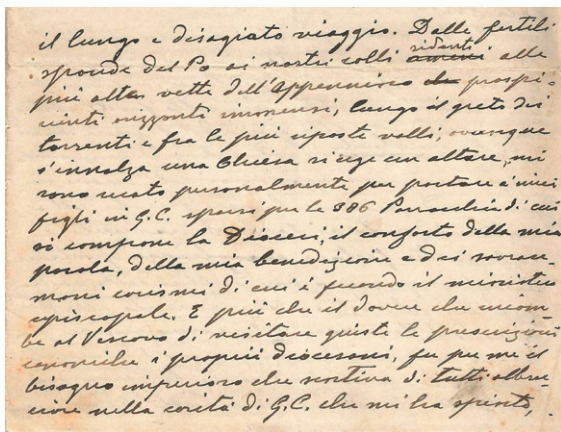 il lungo e disagiato viaggio. Dalle fertili
sponde del Po ai nostri colli ameni ridenti alle
più alte vette dell'Appennino che prospi-
cienti orizzonti immensi, lungo il greto dei
torrenti e fra le più riposte valli, ovunque
s'innalza una Chiesa si erge un altare, mi
sono recato personalmente per portare a' miei
figli in G.C. sparsi per le 386 Parrocchie di cui
si compone la Diocesi, il conforto della mia
parola, della mia benedizione e dei sovrau-
mani carismi di cui è fecondo il ministero
episcopale. E più che il dovere che incom-
be al Vescovo di visitare giusta le prescrizioni
canoniche i proprii diocesani, fu per me il
bisogno imperioso che sentiva di tutti abbrac-
ciare nella carità di G.C. che mi ha spinto,